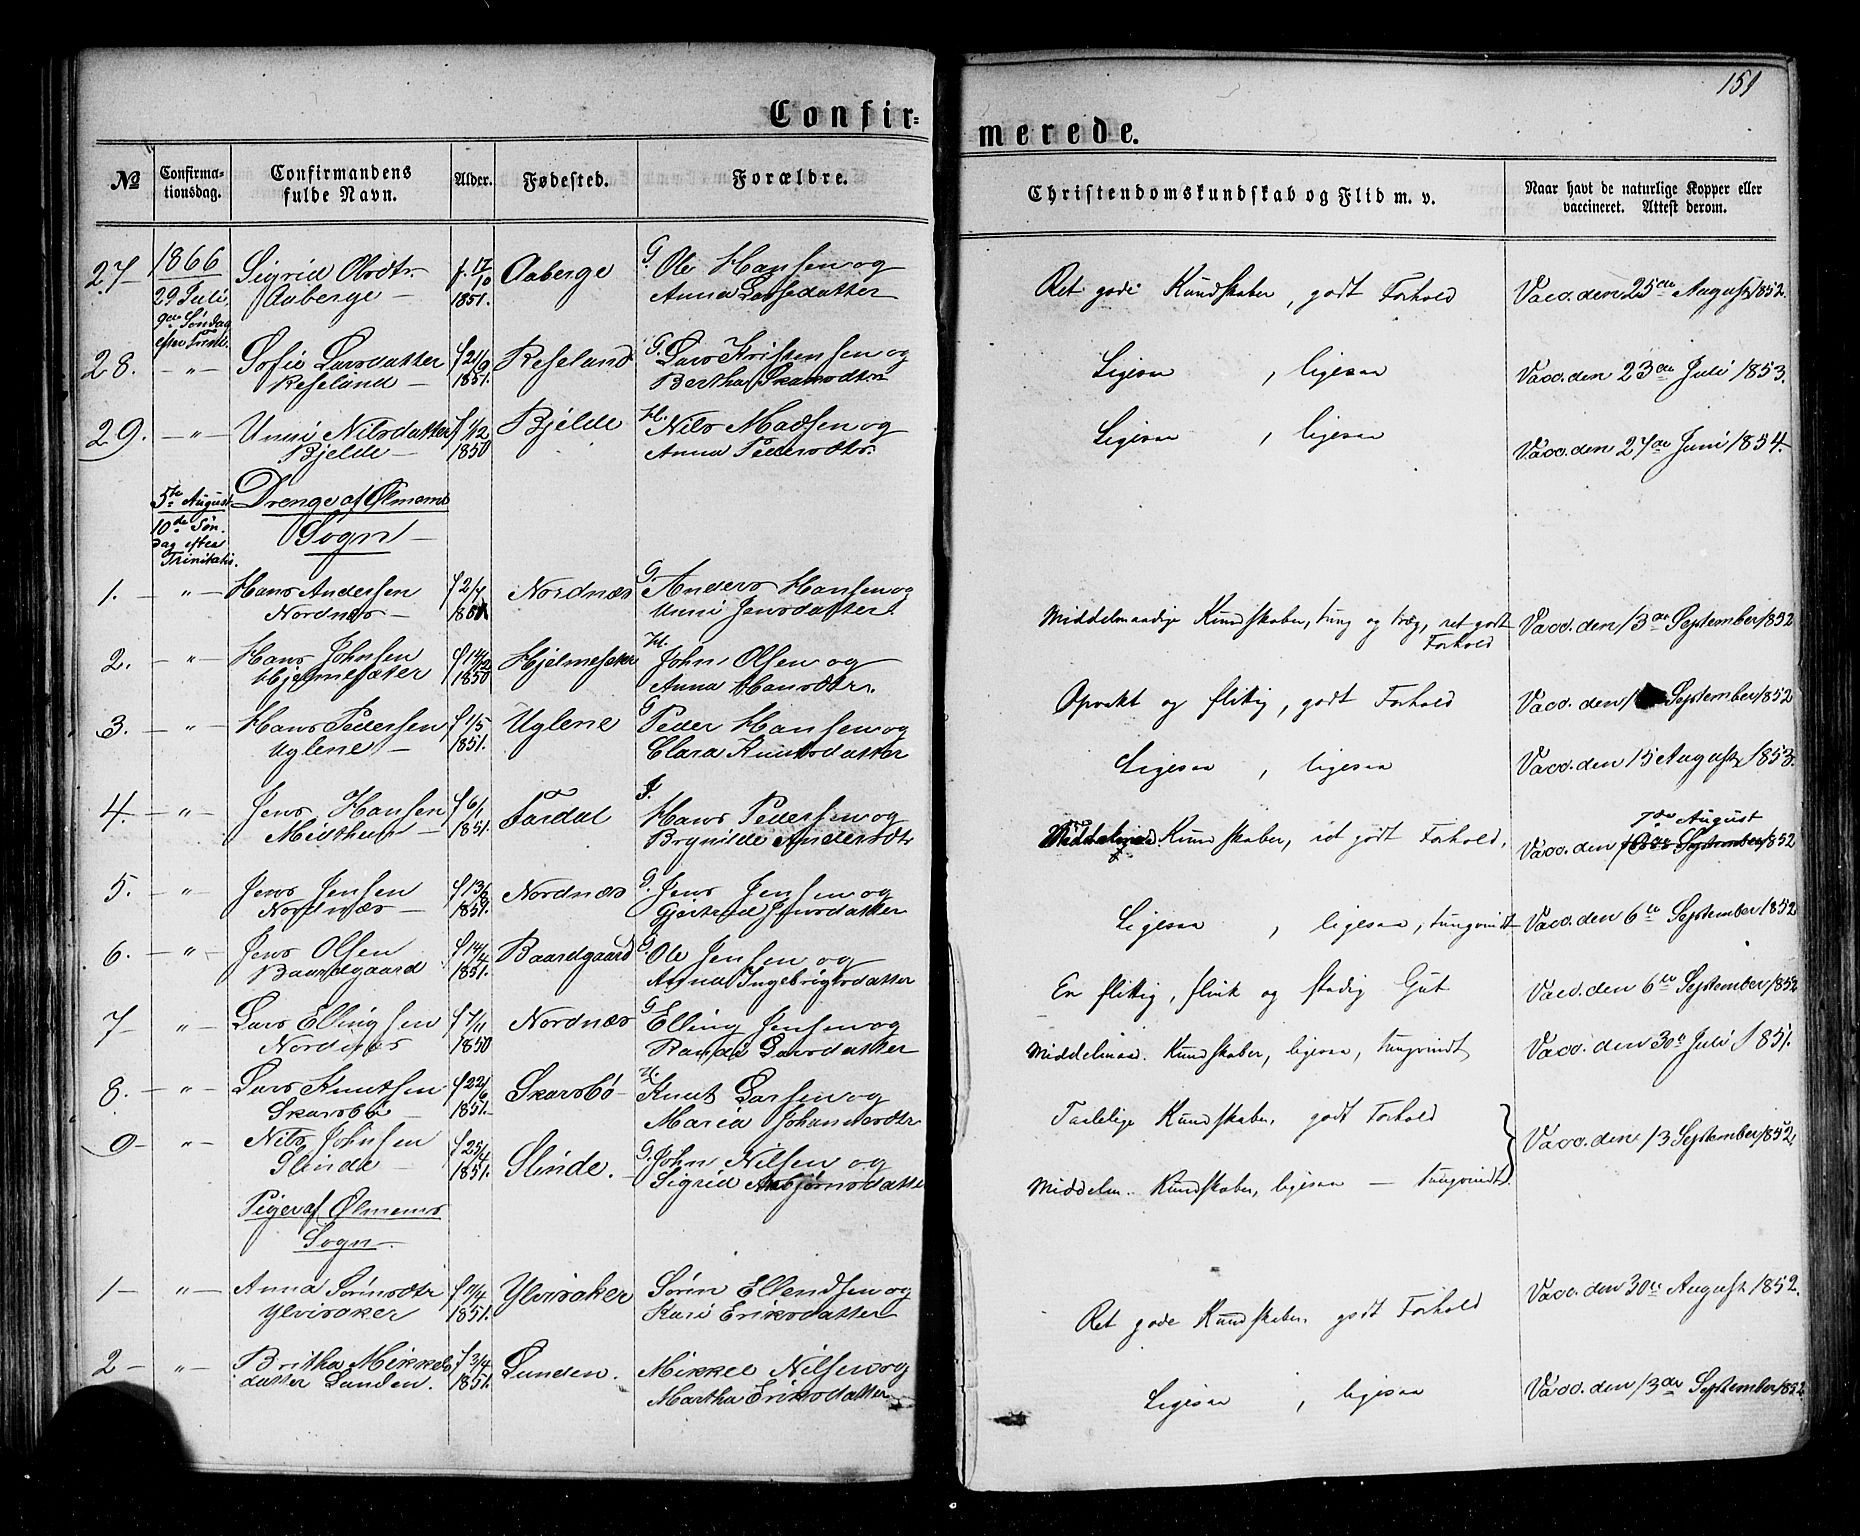 151
Confir-
merede.
No
Confirma-
tionsdag.
Confirmandens
fulde Navn.
Alder.
Fødested.
Forældre.
Christendomskundskab og Flid m. v.
Naar havt de naturlige Kopper eller
vaccineret. Attest derom.
1866
27 29 Juli Sigrid Olsdtr. f. 17/10 Aaberge G. Ole Hansen og Ret gode Kundskaber, godt Forhold Vacc. den 25de August 1852.
9de Søndag Aaberge 1851. Anna Larsdatter
efter Trinit.
28. " Sofie Larsdatter f 21/9 Refeland G. Lars Kristensen og Ligesaa, ligesaa Vacc. den 23de Juli 1853.
Refeland 1851. Bertha
29. " Unni Nilsdatter f 1/12 Bjelde H. Nils Madsen og Ligesaa, ligesaa Vacc. den 27de Juni 1854.
Bjelde 1850 Anna Pedersdtr.
5te August Drenge af Ølmems
10de Søn- Sogn
dag efter
Trinitatis.
1. " Hans Andersen f 2/7 Nordnæs G. Anders Hansen og Middelmaadige Kundskaber, tung og træg, ret godt Vacc. den 13de September 1852
Nordnæs Unni Jensdatter Forhold
2. " Hans Johnsen f 14/12 Hjelmesæter H. John Olsen og Opvakt og flittig, godt Forhold Vacc. den September 1852
Hjelmesæter 1850 Anna Hansdtr.
3. " Hans Pedersen f 1/5 Uglene G. Peder Hansen og Ligesaa, ligesaa Vacc. den 15 August 1853.
Uglene 1851. Clara Knutsdatter
4. " Jens Hansen f 6/1 Fardal I. Hans Pedersen og Middelmaad. Kundskaber, ret godt Forhold, 7de August
Midthun 1851. Brynilde Andersdtr Vacc. den September 1852
5. " Jens Jensen Nordnæs G. Jens Jensen og Ligesaa, ligesaa, tungvindt Vacc. den 6te September 1852
Nordnæs 1851. Gjertrud Jensdatter
6. " Jens Olsen f 14/4 Baardgaard G. Ole Jensen og En flittig, flink og stadig Gut Vacc. den 6te September 1852
Baardgaard 1851. Anna Ingebrigtsdatter
7 " Lars Ellingsen f 7/11 Nordnæs G. Elling Jensen og Middelmaa. Kundskaber, ligesaa, tungvindt Vacc. den 30te Juli 1851.
Nordnæs 1850 Randi Larsdatter
8. " Lars Knutsen f 22/6 Skarsbø Knut Larsen og Taalelige Kundskaber, godt Forhold Vacc. den 13 September 1852.
Skarsbø 1851. Maria Johannesdtr
9 " Nils Johnsen f 25/4 Slinde. G. John Nilsen og Middelm. Kundskaber, ligesaa — tungvindt
Slinde 1851. Sigrid Asbjørnsdatter
Piger af Ølmems
Sogn
1 " Anna Sørinsdtr Ylvisaker Sørin Ellendsen og Ret gode Kundskaber, godt Forhold Vacc. den 30te August 1852.
Ylvisaker 1851. Kari Eriksdatter
2 " Britha Mikkels f 3/4 Lunden. Mikkel Nilsen og Ligesaa, ligesaa Vacc. den 13de September 1852
datter Lunden. 1851. Martha Eriksdatter